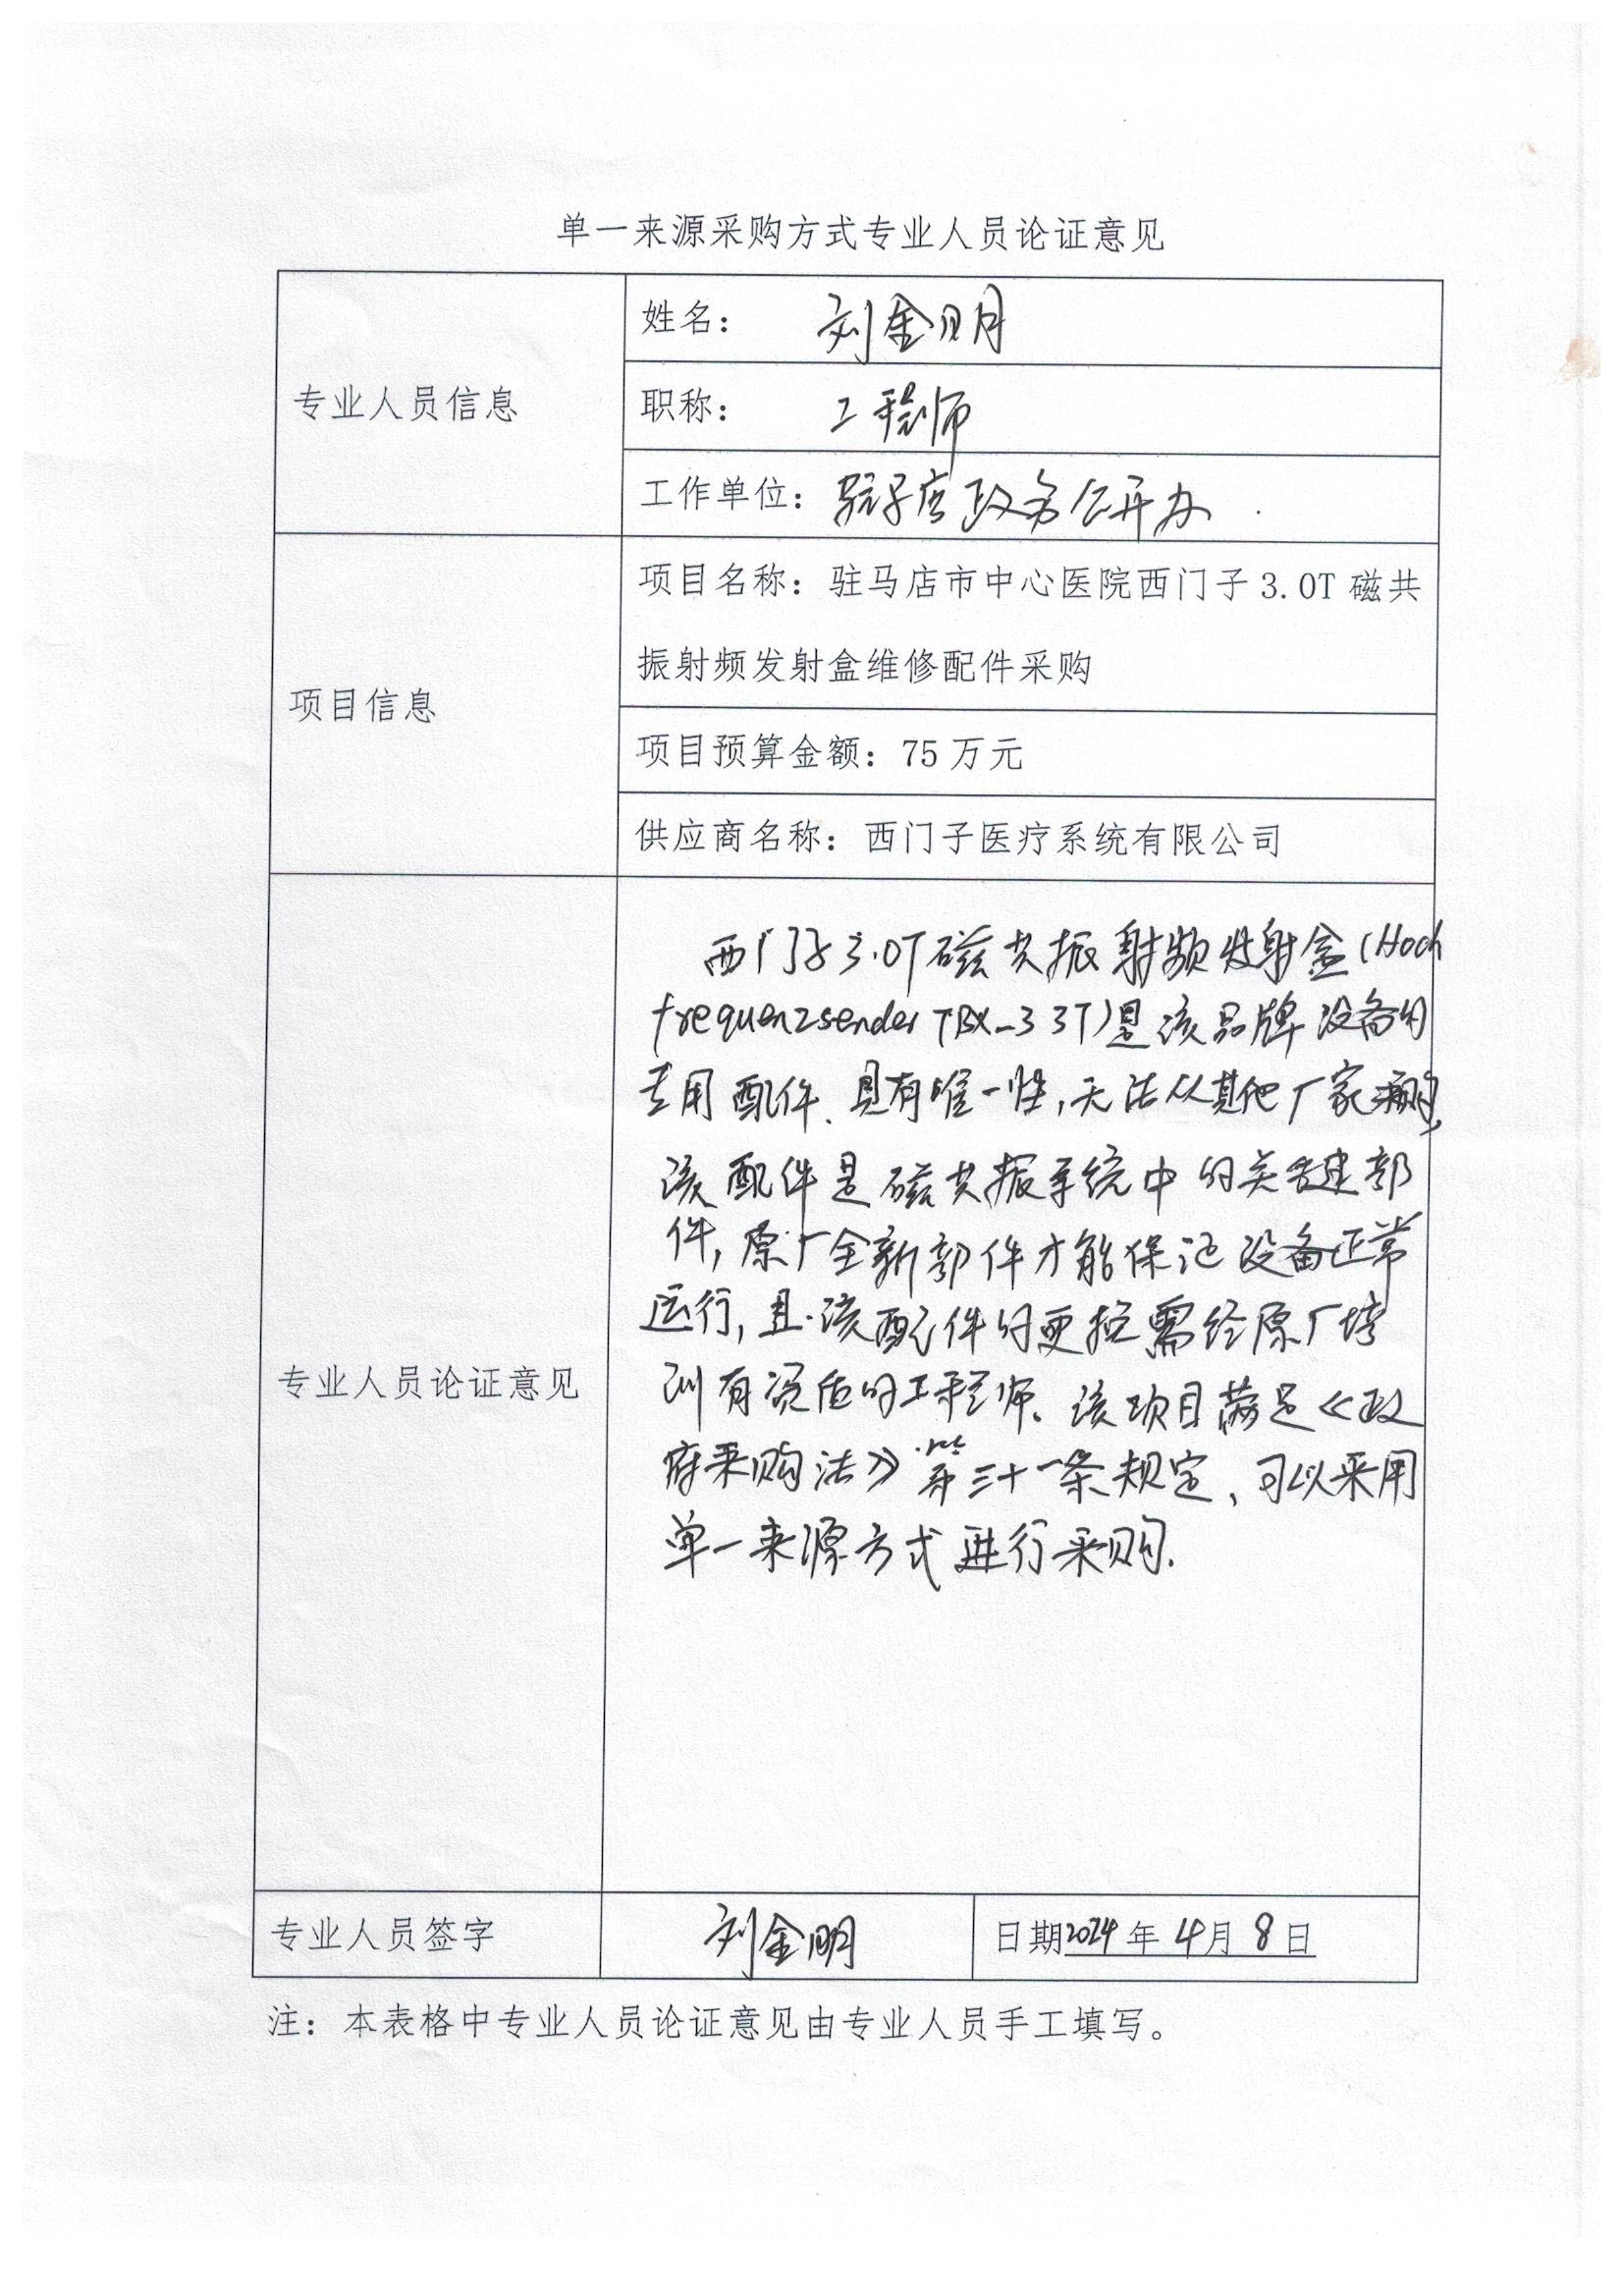 单一来源采购方式专业人员论证意见
专业人员信息
姓名： 刘金明
职称： 工程师
工作单位：驻马店政务公开办
项目信息
项目名称：驻马店市中心医院西门子3.0T磁共
振射频发射盒维修配件采购
项目预算金额：75万元
供应商名称：西门子医疗系统有限公司
专业人员论证意见
西门子3.0T磁共振射频发射盒(Hoch
frequenzsender TBX_3 3T)是该品牌设备的
专用配件、具有唯一性,无法从其他厂家采购,
该配件是磁共振系统中的关键部
件,原厂全新部件才能保证设备正常
运行,且该配件的更换需经原厂培
训有资质的工程师。该项目满足《政
府采购法》第三十一条规定、可以采用
单一来源方式进行采购.
专业人员签字
刘金明
日期2024年4月8日
注：本表格中专业人员论证意见由专业人员手工填写。